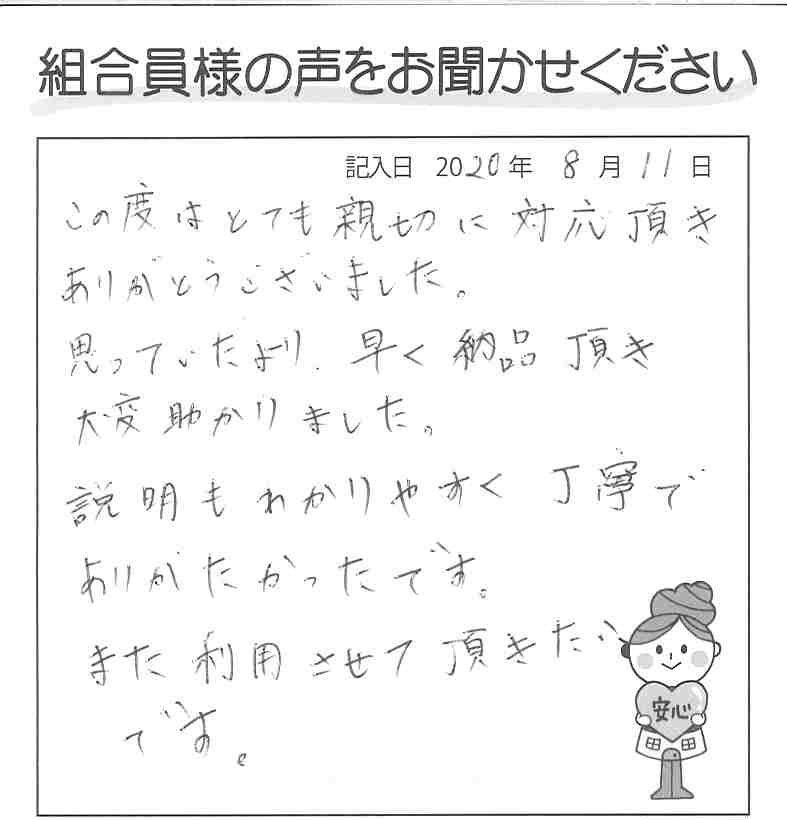 組合員様の声をお聞かせください
記入日 2020年 8月 11日
この度はとても親切に対応頂き
ありがとうございました。
思っていたより、早く納品頂き
大変助かりました。
説明もわかりやすく丁寧で
ありがたかったです。
また利用させて頂きたい
です。
安心